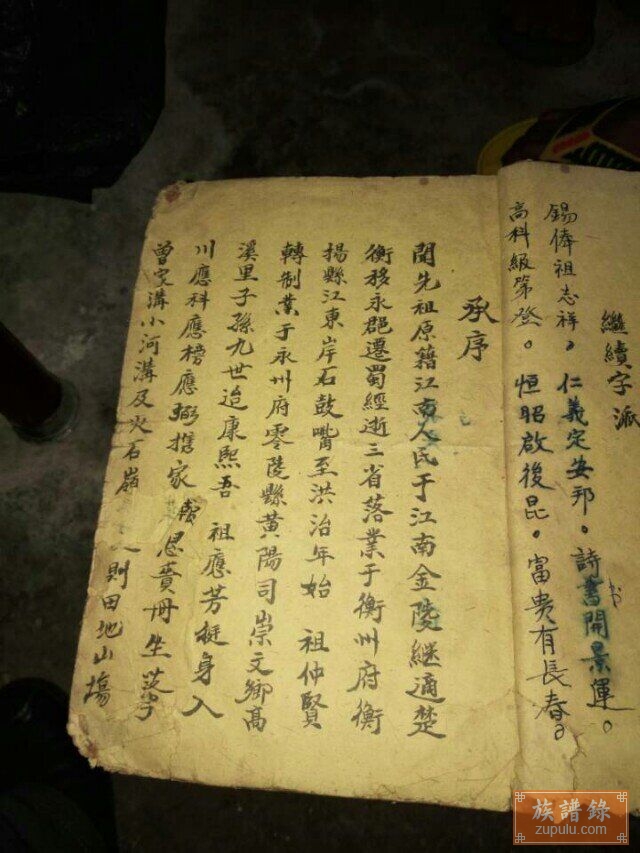 繼續字派
錫俸祖志祥。仁義定安邦。詩書開景運。
书
高科級第登。恒昭啟後昆。富貴有長春。
承序
開先祖原籍江南人民于江南金陵繼適楚
衡移永郡遷蜀經逝三省落業于衡州府衡
揚縣江東岸石鼓嘴至洪治年始 祖仲賢
轉制業于永州府零陵縣黄陽司崇文鄉高
溪里子孫九世迨康熙吾 祖應芳挺身入
川應科應榜應弼携家 賴恩賚冊坐落
曾家溝小河溝及火石嶺 則田地山塲
族譜錄
zupulu.com